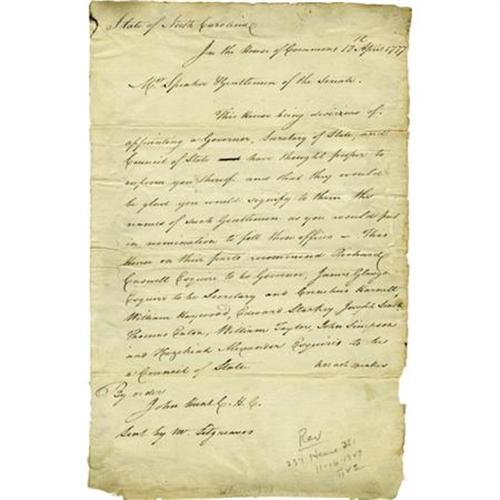 State of North Carolina
In the House of Commons 17th April 1777
Mr. Speaker & Gentlemen of the Senate.
This House being desirous of
appointing a Governor, Secretary of State, and
Council of State — have thought proper to
inform you thereof and that they would
be glad you would signify to them the
names of such Gentlemen as you would put
in nomination to fill those offices — This
House on their parts recommend Richard
Caswell Esquire to be Governor, James Glasgo
Esquire to be Secretary and Cornelius Harnett,
William Haywood, Edward Starkey, Joseph
Thomas Eaton, William Taylor, John Simpson
and Hezekiah Alexander Esquires to be
a Council of State.
By order
John Hunt C. H. C.
Sent by Mr.
Rev
11-16-1949